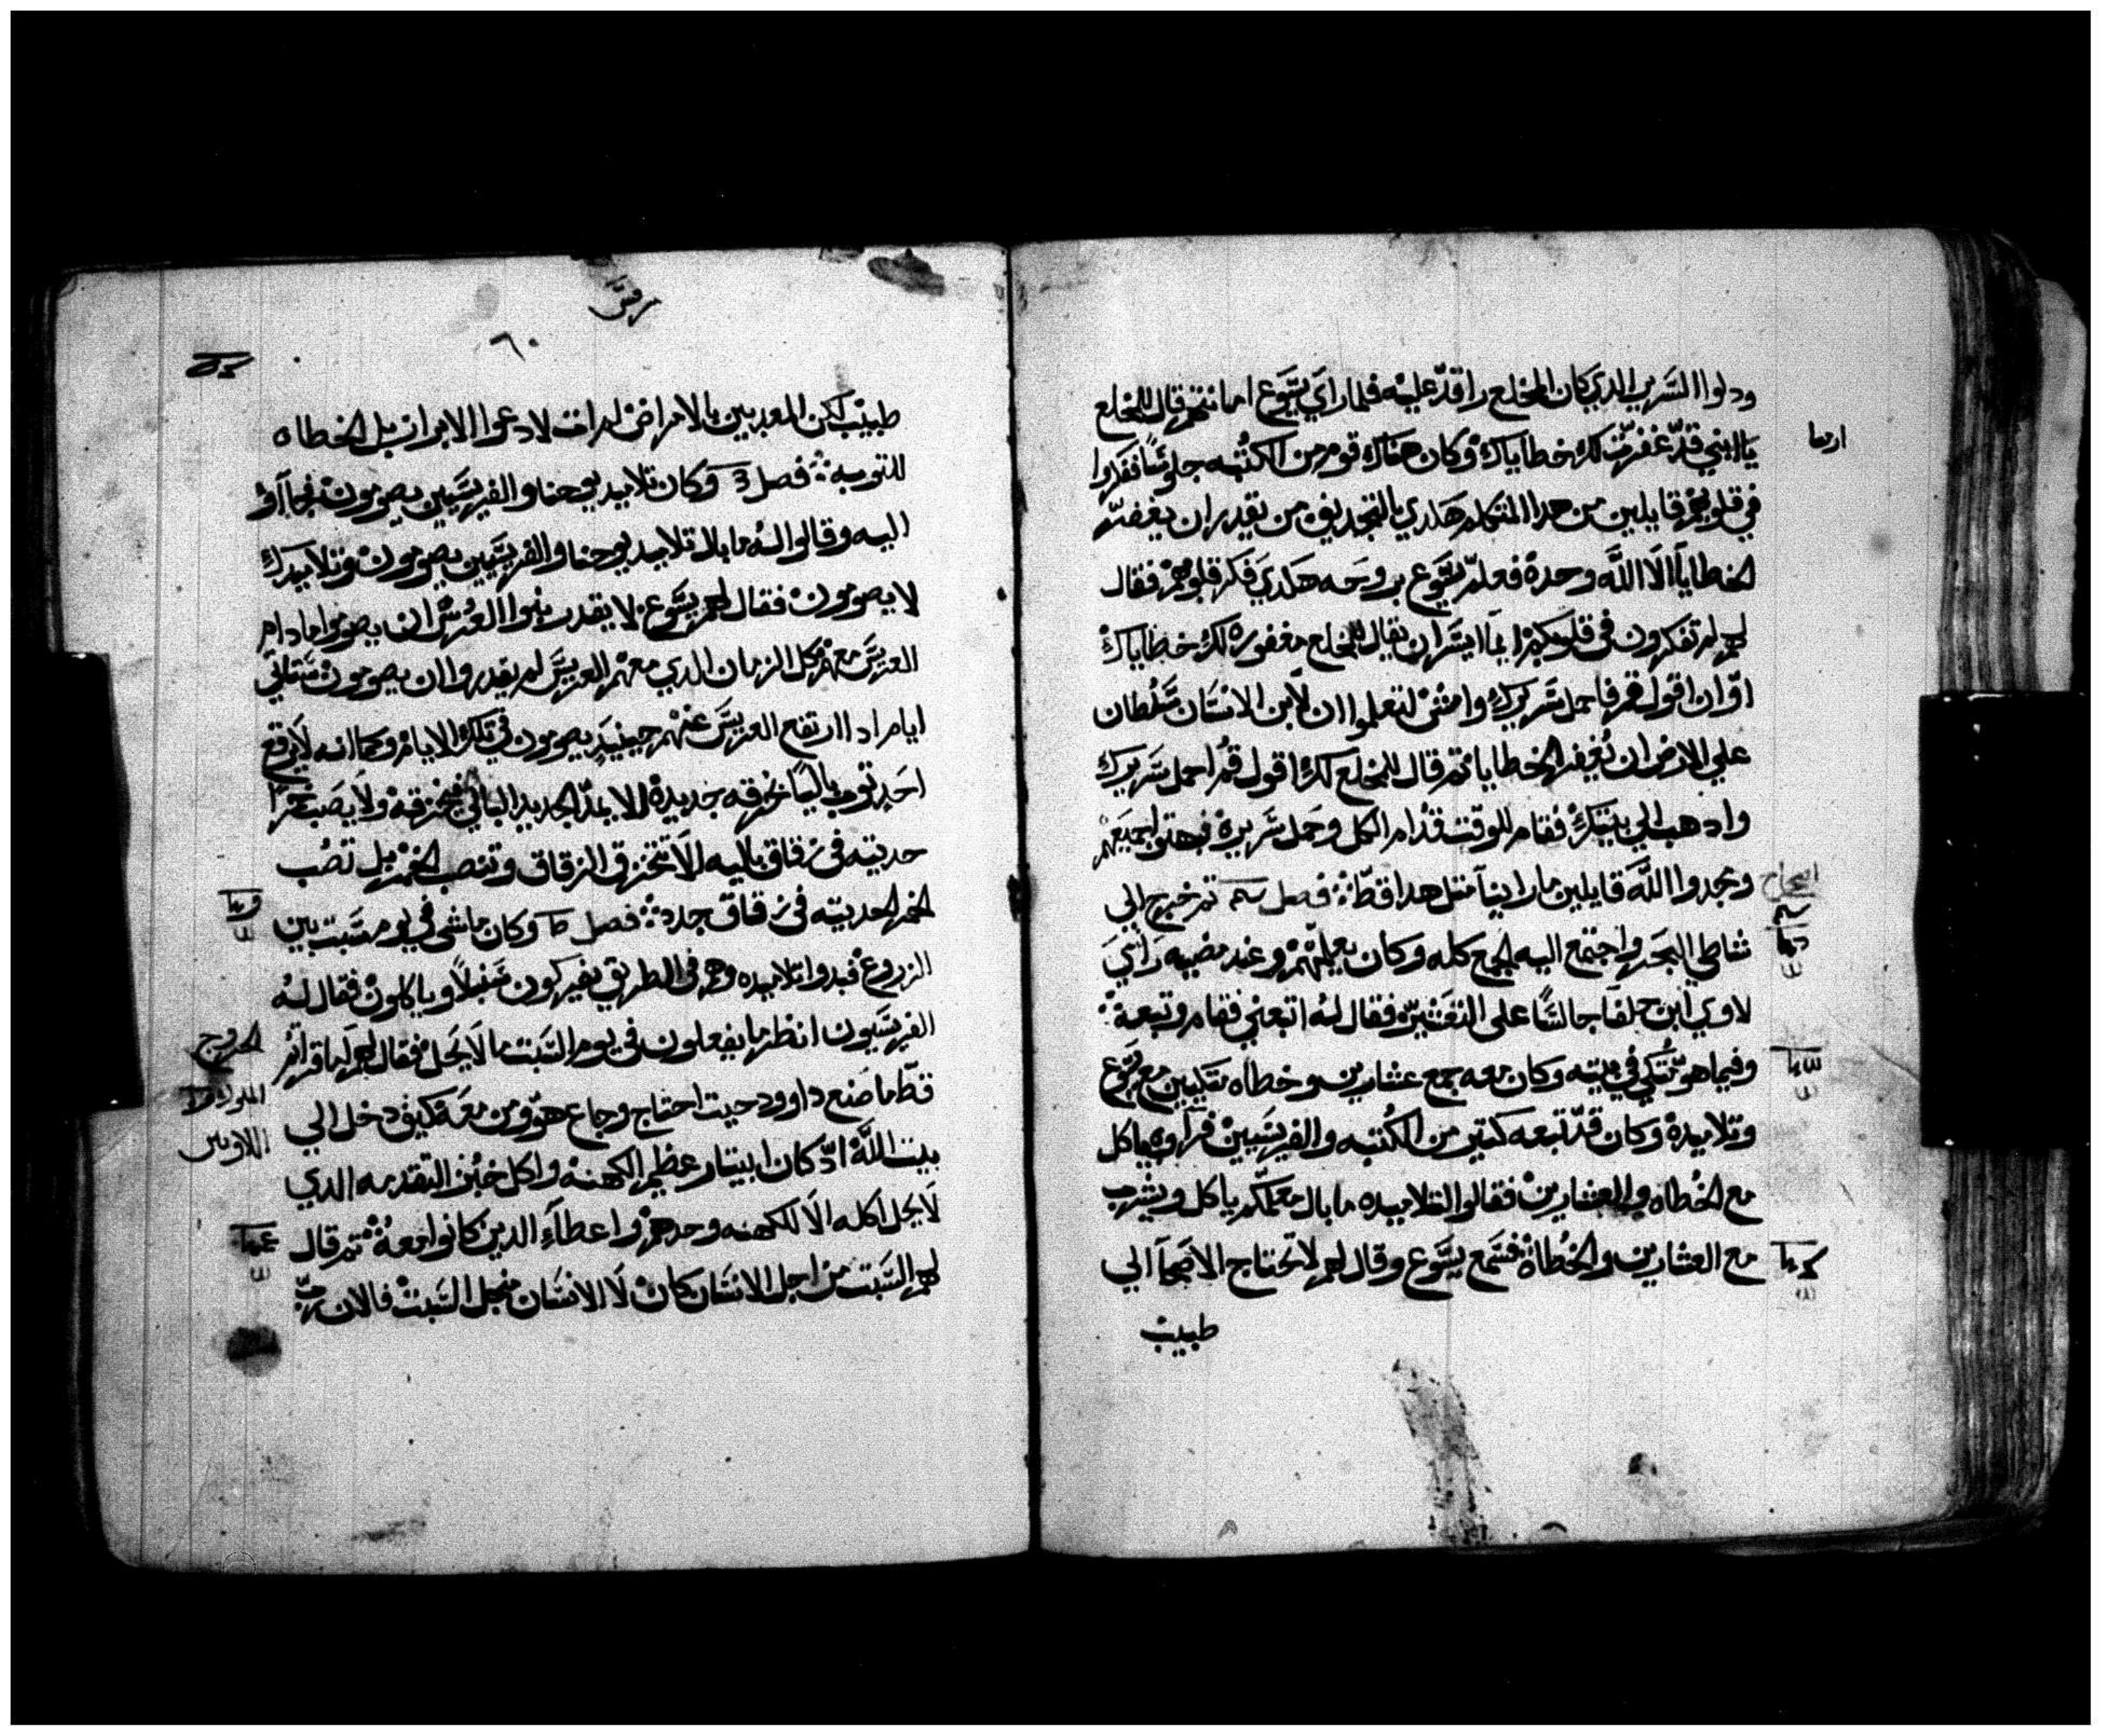 ودلوا السرير الدي كان المخلع راقد عليه فلما راي يسوع امانتهم قال للمخلع
يا ابني قد غفرت لك خطاياك وكان هناك قوم من الكتبه جلوسا ففكروا
في قلوبهم قايلين من هدا المتكلم هكدي بالتجديف من يقدر ان يغفر
الخطايا الا الله وحده فعلم يسوع بروحه هكدي فكر قلوبهم فقال
لهم لم تفكرون في قلوبكم ايما ايسر ان يقال للمخلع مغفوره لك خطاياك
او ان اقول قم فاحمل سريرك وامشي لتعلموا ان لابن الانسان سلطان
علي الارض ان يغفر الخطايا ثم قال للمخلع لك اقول قم احمل سريرك
وادهب الي بيتك فقام للوقت قدام الكل وحمل سريره فبهتوا جميعهم
ومجدوا الله قايلين ما راينا متل هدا قط فصل تم خرج الي
شاطي البحر واجتمع اليه الجمع كله وكان يعلمهم وعند مضيه راي
لاوي ابن حلفا جالسا على التعشير فقال له اتبعني فقام وتبعه
وفيما هو متكي في بيته وكان معه جمع عشارين وخطاه متكيين مع يسوع
وتلاميده وكان قد تبعه كتير من الكتبه والفريسيين فراوه ياكل
مع الخطاه والعشارين فقالوا لتلاميده ما بال معلمكم ياكل ويشرب
مع العشارين والخطاه فسمع يسوع وقال لهم لا تحتاج الاصحا الي
طبيب
مرقس
٦٠
طبيب لكن المعدبين بالامراض لم ات لادعوا الابرار بل الخطاه
للتوبه فصل وكان تلاميد يوحنا والفريسيين يصومون فجاوا
اليه وقالوا له ما بال تلاميد يوحنا والفريسيين يصومون وتلاميدك
لا يصومون فقال لهم يسوع لا يقدر بنوا العرس ان يصوموا ما دام
العريس معهم كل الزمان الدي معهم العريس لم يقدروا ان يصومون ستاتي
ايام ادا ارتفع العريس عنهم حينيد يصومون في تلك الايام وكما انه لا يرقع
احد توب باليا بخرقه جديده الا يمد الجديد البالي فيخرقه ولا يصب خمرا
حديته في زقاق باليه الا تتخرق الزقاق وتنصب الخمر بل تصب
الخمر الحديته في زقاق جدد فصل وكان ماشي في يوم سبت بين
الزروع فبدوا تلاميده وهم في الطريق يفركون سنبلا وياكلون فقال له
الفريسيون انظر ما يفعلون في يوم السبت ما لا يحل فقال لهم اما قراتم
قط ما صنع داوود حيت احتاج وجاع هو ومن معه كيف دخل الي
بيت الله اد كان ابيتار عظيم الكهنه واكل خبز التقدمه الدي
لا يحل اكله الا للكهنه وحدهم واعطا الدين كانوا معه تم قال
لهم السبت من اجل الانسان كان لا الانسان من اجل السبت فالان رب
الخروج